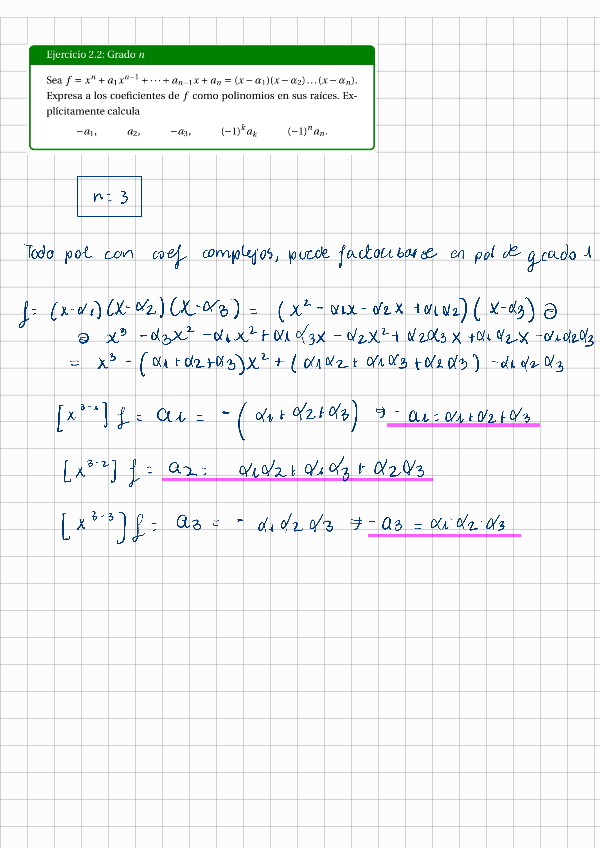 Ejercicio 2.2: Grado n
Sea f = xⁿ + a₁xⁿ⁻¹ + ··· + aₙ₋₁x + aₙ = (x − α₁)(x − α₂)...(x − αₙ).
Expresa a los coeficientes de f como polinomios en sus raíces. Ex-
plícitamente calcula
−a₁, a₂, −a₃, (−1)ᵏaₖ (−1)ⁿaₙ.
n = 3
Todo pol con coef complejos, puede factorizarse en pol de grado 1
f = (x-α₁)(x-α₂)(x-α₃) = (x² - α₁x - α₂x + α₁α₂)(x-α₃) ⊜
⊜ x³ - α₃x² - α₁x² + α₁α₃x - α₂x² + α₂α₃x + α₁α₂x - α₁α₂α₃
= x³ - (α₁+α₂+α₃)x² + (α₁α₂ + α₁α₃ + α₂α₃) - α₁α₂α₃
[x³⁻¹] f = a₁ = -(α₁+α₂+α₃) ⇒ -a₁ = α₁+α₂+α₃
[x³⁻²] f = a₂ = α₁α₂ + α₁α₃ + α₂α₃
[x³⁻³] f = a₃ = - α₁α₂α₃ ⇒ -a₃ = α₁·α₂·α₃